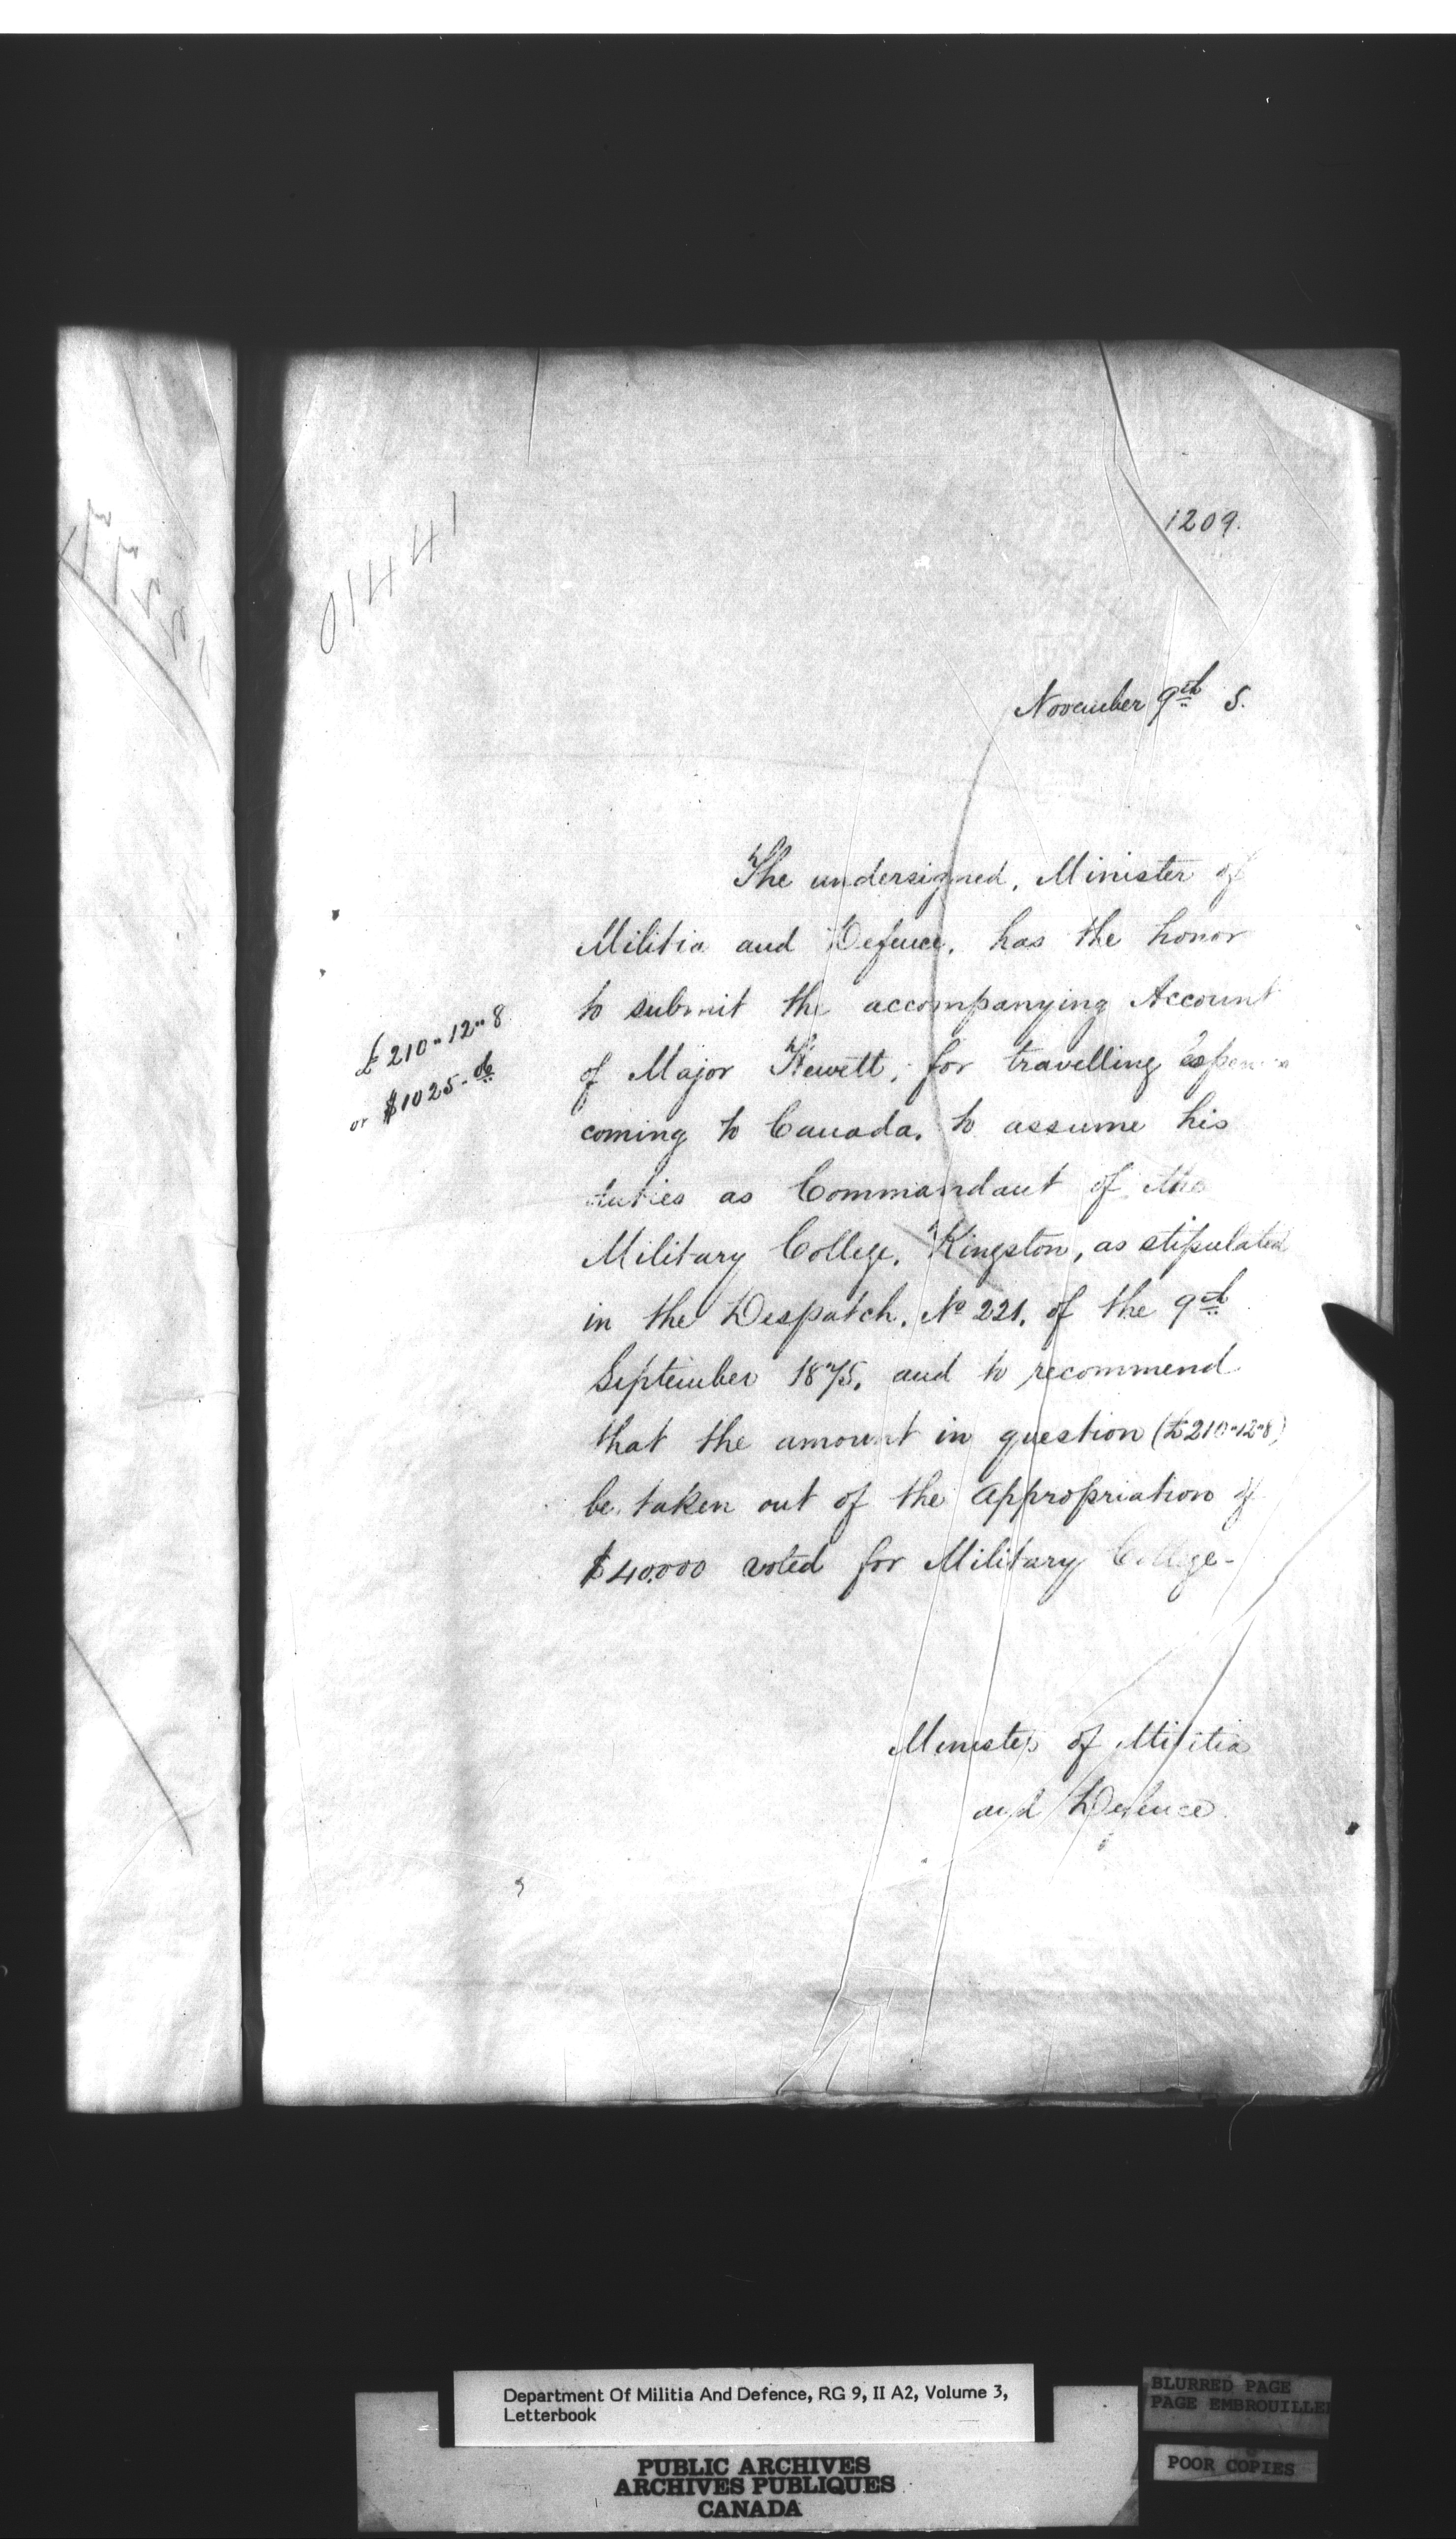 1209.
01441
November 9th 5.
The undersigned, Minister of
Militia and Defence, has the honor
to submit the accompanying Account
£210"12"8
or $1025-06
of Major Hewett, for travelling
coming to Canada, to assume his
duties as Commandant of the
Military College, Kingston, as stipulated
in the Despatch, No 221, of the 9th
September 1875, and to recommend
that the amount in question (£210"12"8)
be taken out of the appropriation of
$40,000 voted for Military College-
Minister of Militia
and Defence.
Department Of Militia And Defence, RG 9, II A2, Volume 3,
Letterbook
PUBLIC ARCHIVES
ARCHIVES PUBLIQUES
CANADA
BLURRED PAGE
PAGE EMBROUILLEE
POOR COPIES